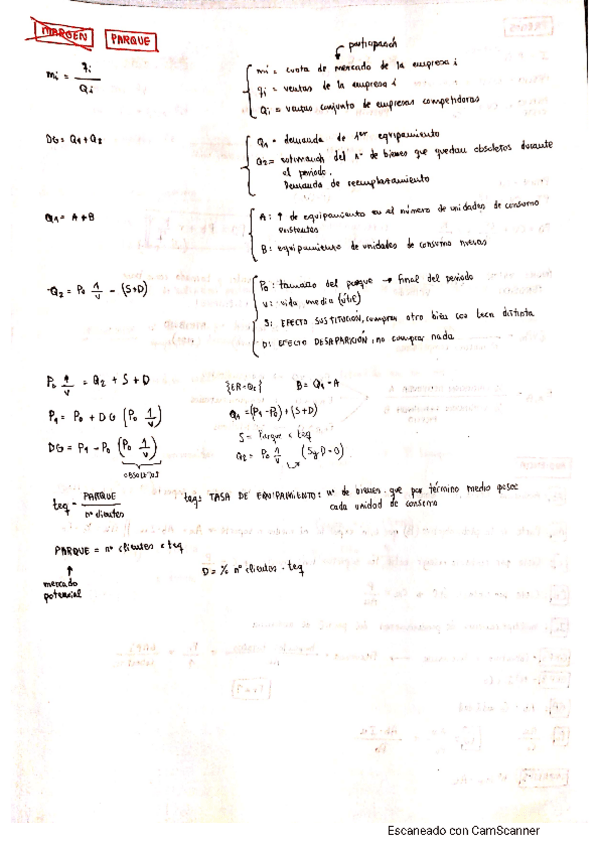 MARGEN PARQUE
participación
mi = qi / Qi
mi = cuota de mercado de la empresa i
qi = ventas de la empresa i
Qi = ventas conjunto de empresas competidoras
DG = Q1 + Q2
Q1 = demanda de 1er equipamiento
Q2 = estimación del nº de bienes que quedan obsoletos durante
el periodo.
Demanda de reemplazamiento
Q1 = A + B
A: ↑ de equipamiento en el número de unidades de consumo
existentes
B: equipamiento de unidades de consumo nuevas
Q2 = P0 1/v - (S+D)
P0: tamaño del parque → final del periodo
v: vida media (útil)
S: EFECTO SUSTITUCIÓN, comprar otro bien con tecn distinta
D: EFECTO DESAPARICIÓN, no comprar nada
P0 1/v = Q2 + S + D
{ER = Q2} B = Q1 - A
P1 = P0 + DG (P0 1/v)
Q1 = (P1 - P0) + (S+D)
S = Parque × teq
DG = P1 - P0 (P0 1/v)
Q2 = P0 1/v (S y D = 0)
teq = PARQUE / nº clientes
teq: TASA DE EQUIPAMIENTO: nº de bienes que por término medio posee
cada unidad de consumo
PARQUE = nº clientes × teq
↑
mercado
potencial
D = % nº clientes · teq
Escaneado con CamScanner